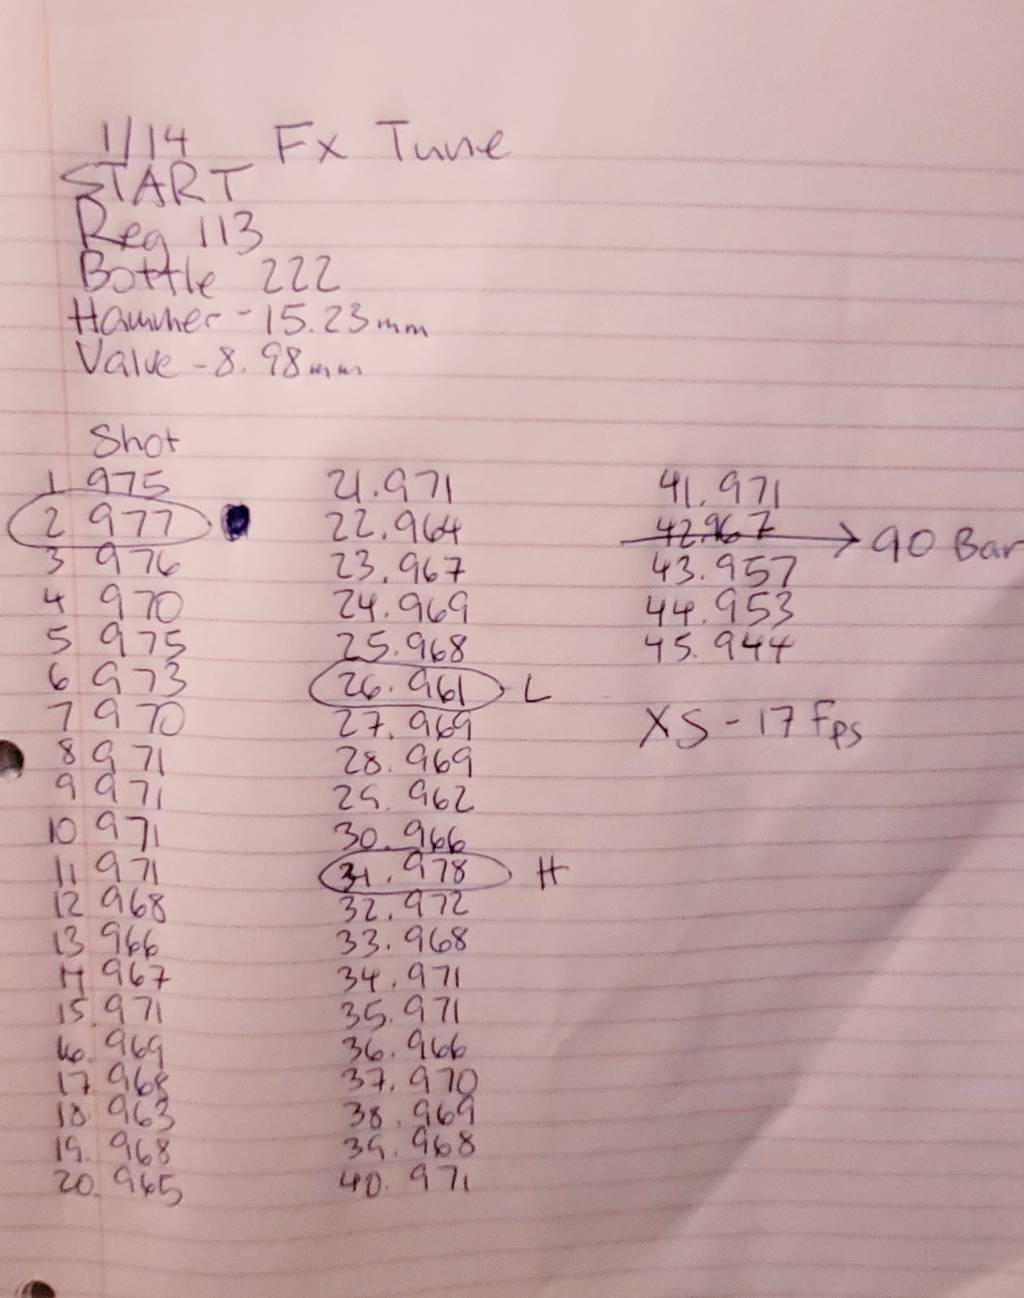 1/14 Fx Tune
START
Reg 113
Bottle 222
Hammer - 15.23mm
Valve - 8.98mm
Shot
1 975
2 977
3 976
4 970
5 975
6 973
7 970
8 971
9 971
10 971
11 971
12 968
13 966
14 967
15. 971
16. 969
17. 968
18. 963
19. 968
20. 965
21. 971
22. 964
23. 967
24. 969
25. 968
26. 961 L
27. 969
28. 969
29. 962
30. 966
31. 978 H
32. 972
33. 968
34. 971
35. 971
36. 966
37. 970
38. 969
39. 968
40. 971
41. 971
42. 967 → 90 Bar
43. 957
44. 953
45. 944
XS - 17 Fps